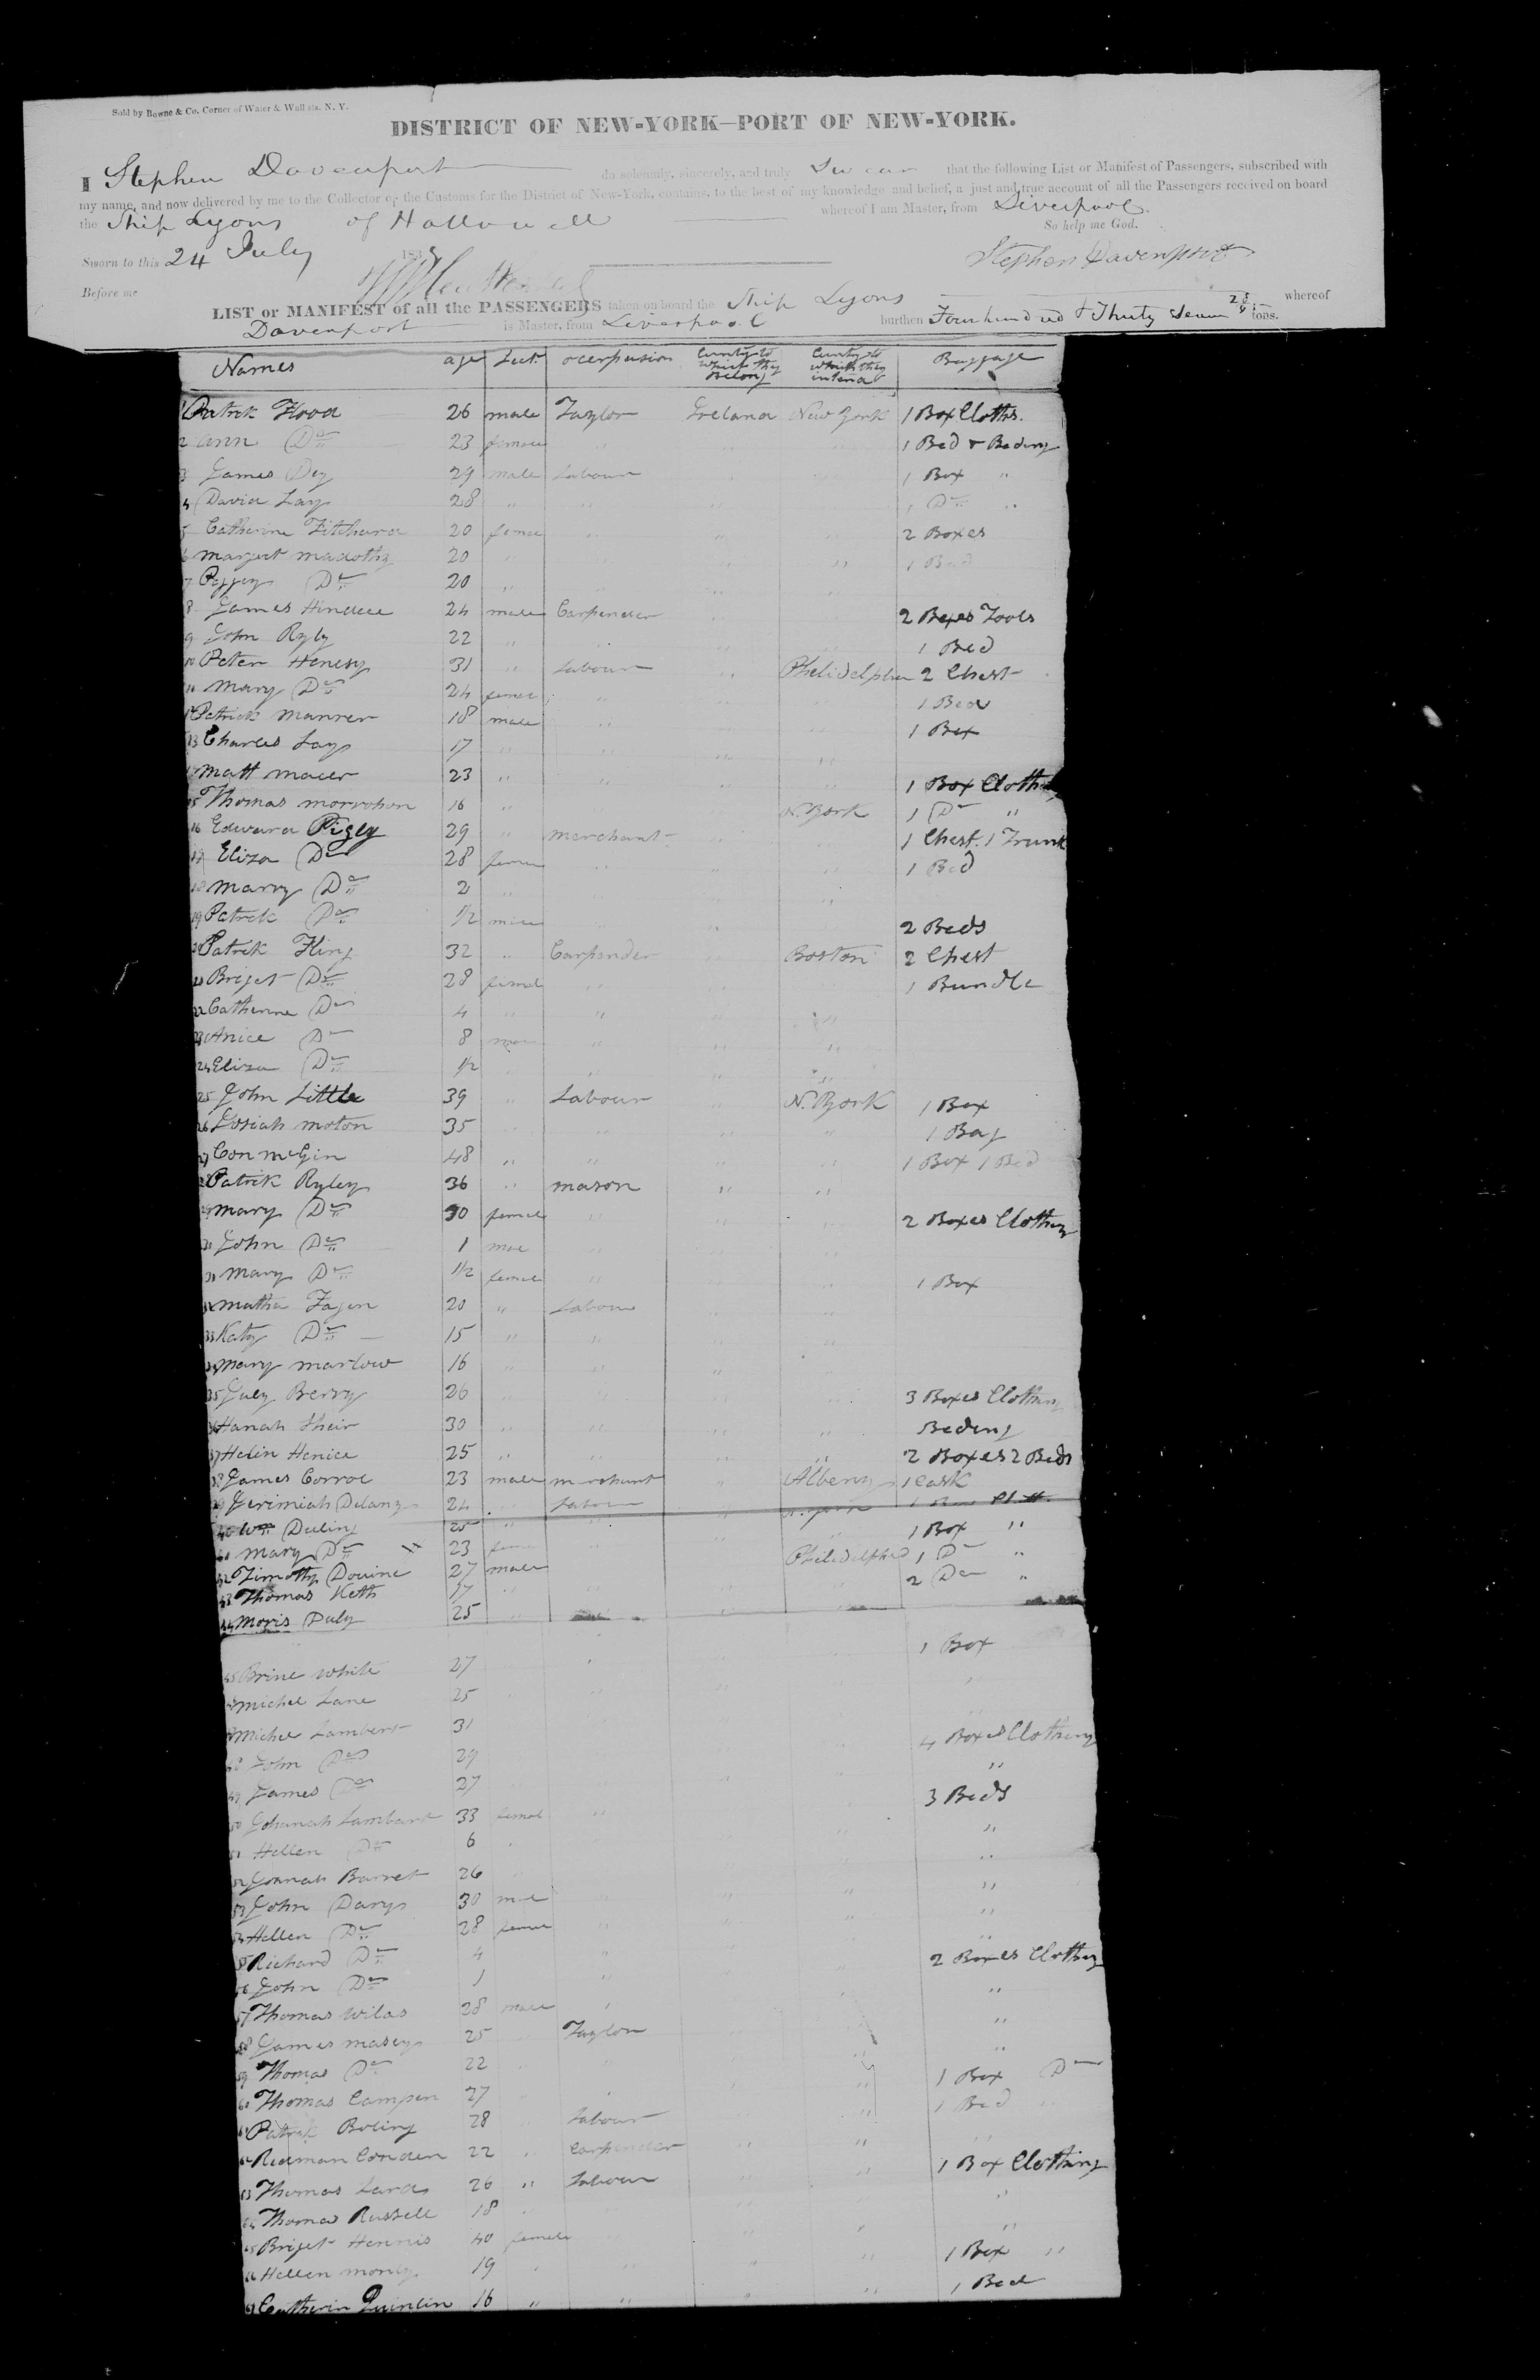 Sold by Bowne & Co. Corner of Water & Wall sts. N. Y.
DISTRICT OF NEW-YORK—PORT OF NEW-YORK.
I Stephen Davenport do solemnly, sincerely, and truly Swear that the following List or Manifest of Passengers, subscribed with
my name, and now delivered by me to the Collector of the Customs for the District of New-York, contains, to the best of my knowledge and belief, a just and true account of all the Passengers received on board
the Ship Lyons of Hallowell whereof I am Master, from Liverpool.
So help me God.
Sworn to this 24 July 183 Stephen Davenport
Before me
LIST or MANIFEST of all the PASSENGERS taken on board the Ship Lyons whereof
Davenport is Master, from Liverpool burthen Four hundred & Thirty Seven tons.
Names age Sect. occerpasion Cuntry to which they Belong Cuntry to which they intend Baggage
1 Patrik Flood 26 male Taylor Ireland New York 1 Box Cloths.
2 Ann Do 23 female 1 Bed & Beding
3 James Dey 29 male Labour 1 Box "
4 David Lay 28 " 1 Do "
5 Catherine 20 femel 2 Boxes
6 Margret 20 " 1 Bed
7 Peggy Do 20 "
8 James 24 male Carpender 2 Boxes Tools
9 John Ryly 22 " 1 Bed
10 Peter Henesy 31 " Labour Philidelpha 2 Chest
11 Mary Do 24 femel 1 Bed
12 Patrick Manner 18 male 1 Box
13 Charles Lay 17 "
14 Matt 23 " 1 Box Clothing
15 Thomas 16 " N. York 1 Do "
16 Edward Pigly 29 " Merchant 1 Chest. 1 Trunk
17 Eliza Do 28 femel 1 Bed
18 Marry Do 2 "
19 Patrik Do 1/2 male 2 Beds
20 Patrik Fling 32 " Carpender Boston 2 Chest
21 Briget Do 28 femel 1 Bundle
22 Catherine Do 4 "
23 Do 8
24 Eliza Do 1/2
25 John Little 39 " Labour N. York 1 Box
26 Josiah Moton 35 1 Bag
27 Con McGin 48 " 1 Box 1 Bed
28 Patrik Ryley 36 " Mason
29 Mary Do 30 femel 2 Boxes Clothing
30 John Do 1
31 Mary Do 1/2 femel 1 Box
32 Fagen 20 " Labour
33 Katy Do 15 "
34 Mary Marlow 16 "
35 July Berry 26 3 Boxes Clothing
36 Hanah 30 " Beding
37 Helin Henice 25 " 2 Boxes 2 Beds
38 James 23 male merchant Albeny 1 Cask
39 Jerimiah Delany 24 Labour
40 Wm 25 " 1 Box "
41 Mary Do 23 Philedelphia 1 Do "
42 Timothy 27 male 2 Do "
43 Thomas Keth 17
44 Moris Duly 25
45 Brine White 27 1 Box
46 Michel Lane 25
47 Michel Lambert 31 4 Boxes Clothing
48 John Do 29 "
49 James Do 27 3 Beds
50 Johanah Lambert 33 femel "
51 Hellen Do 6
52 Barret 26
53 John Darys 30
54 Hellen Do 28
55 Richard Do 4 2 Boxes Clothing
56 John Do 1 "
57 Thomas Wilas 28 male
58 James Masey 25 Taylor
59 Thomas Do 22 1 Box Do
60 Thomas Campen 27 1 Bed
61 Patrik Boling 28 Labour
62 Redman Conden 22 Carpender 1 Box Clothing
63 Thomas 26 " Labour
64 Thomas Russell 18
65 Briget Hennis 40 female 1 Box "
66 Hellen 19 1 Bed
67 Catherin Quinlin 16 "